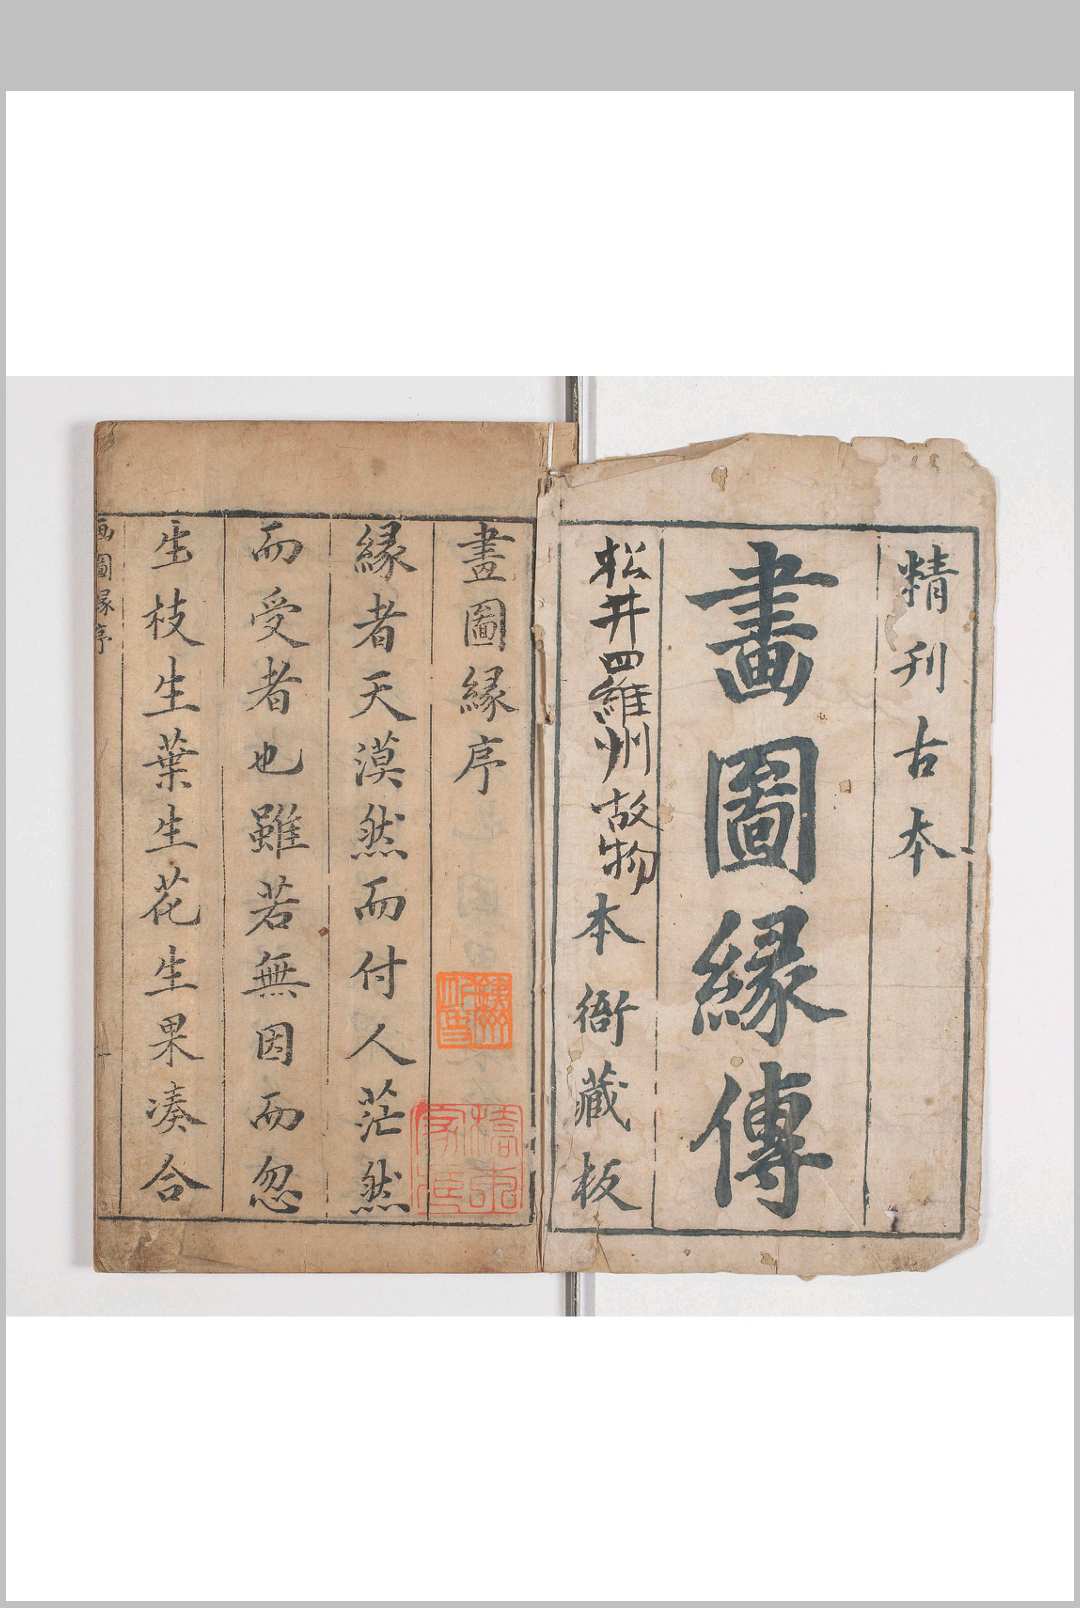 精刊古本
畫圖緣傳
松井羅州故物
本衙藏板
畫圖緣序
緣者天漠然而付人茫然
而受者也雖若無因而忽
生枝生葉生花生果湊合
画圖緣序